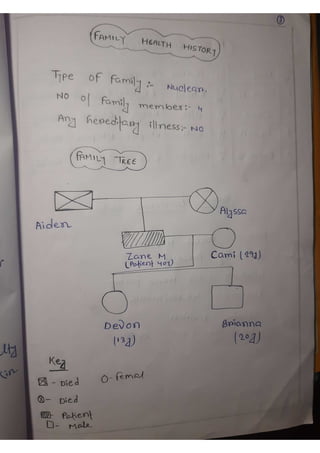 ①
FAMILY HEALTH HISTORY
Type of family :- Nuclear,
No of family member:- 4
Any hereditary illness:- No
FAMILY TREE
Aiden
Alyssa
Zane M
(Patient 40y)
Cami (29y)
Devon
(13y)
Brianna
(20y)
Key
- Died O- Femal
- Died
- Patient
- Male